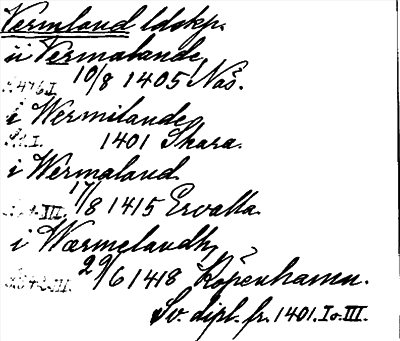 Vermland ldskp.
ii Vermalande
10/8 1405 Näs.
i Wermilande
1401 Skara.
i Wermaland
17/8 1415 Ervalla.
i Wærmelandh,
29/6 1418 Köpenhamn.
Sv. dipl. fr. 1401. I o. III.